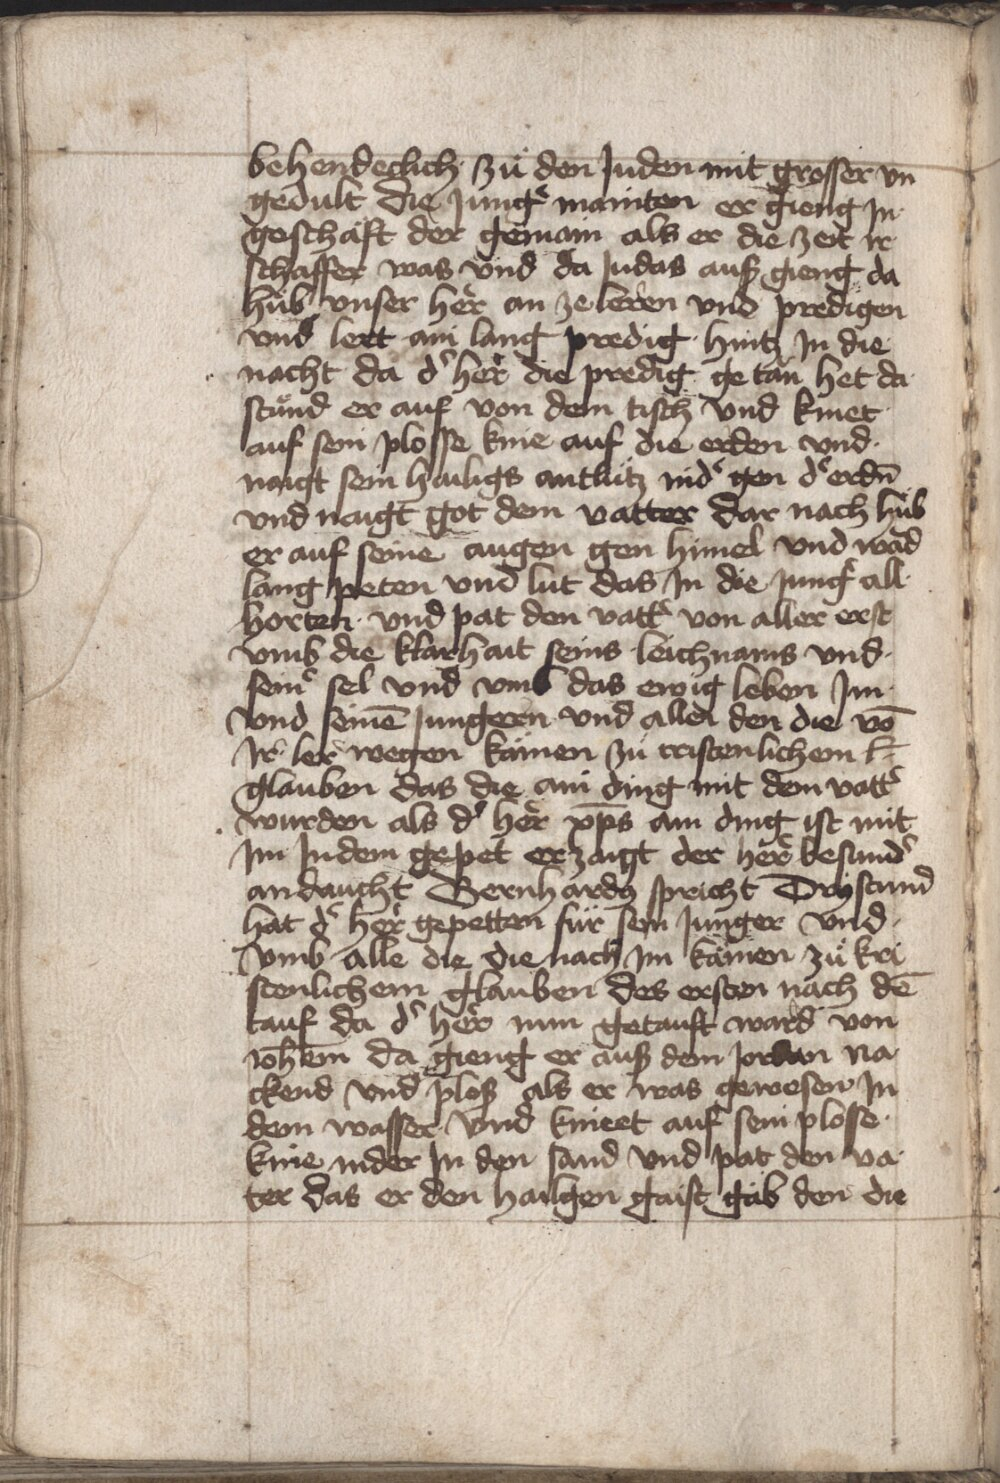 behendeclich zů den Juden mit grosser vn
gedult die Jungͤ mainten er gieng Jn
geschäft der gemain als er die zeit ir
schaffer was vnd da Judas auß gieng da
hůb vnser her an ze leren vnd predigen
vnd lert ain lang predig hintz Jn die
nacht da dͤ her die predig ge tan het da
stůnd er auf von dem tisch vnd kniet
auf sein plosse knie auf die erden vnd
naigt sein hailigs antlütz nidͤ gen dͤ erdn̄
vnd naigt got dem vatter dar nach hůb
er auf seine augen gen himel vnd wad
lang peten vnd lut das Jn die Jungͤ all
horten vnd pat den vattͤ von aller erst
vmb die klarhait seins leichnams vnd
seinͤ sel vnd vmb das ewig leben Jm
vnd seinē Jungern vnd allen den die vō
Jr ler wegen kämen zu cristenlichem k
glauben das die ain ding mit dem vattͤ
wurden als dͤ her xp̄s ain ding ist mit
Jm Jn dem gepet erzaigt der her besundͤ
andaucht Bernhardꝰ spricht Drystund
hat dͤ her gepetten für sein Junger vnd
vmb alle die die nach Jm kämen zů kri
stenlichem glauben des ersten nach dē
tauf da dͤ her nun getauft ward von
ioh̄em da gieng er auß dem Jordan na
ckend vnd ploß als er was gewesen Jn
dem wasser vnd knieet auf sein plosse
knie nider Jn den sand vnd pat den va
ter das er den hailgen gaist gäb den die